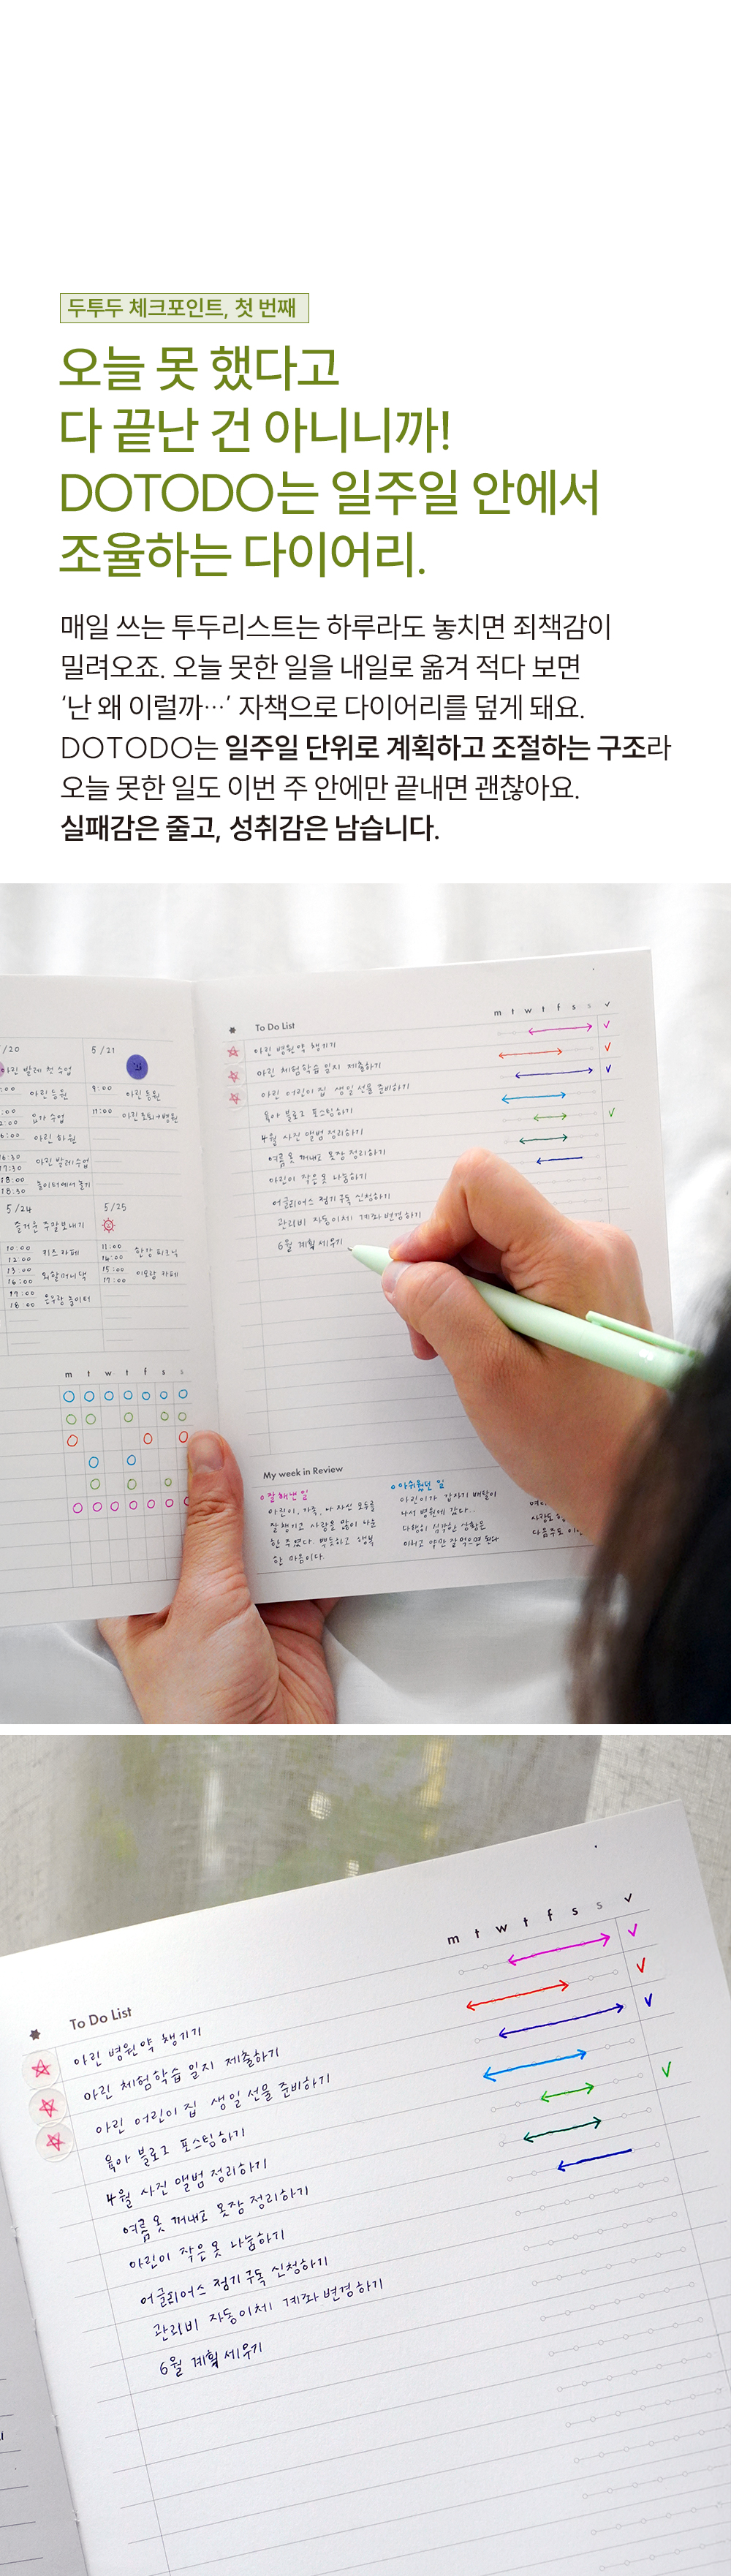 두투두 체크포인트, 첫 번째
오늘 못 했다고
다 끝난 건 아니니까!
DOTODO는 일주일 안에서
조율하는 다이어리.
매일 쓰는 투두리스트는 하루라도 놓치면 죄책감이
밀려오죠. 오늘 못한 일을 내일로 옮겨 적다 보면
‘난 왜 이럴까…’ 자책으로 다이어리를 덮게 돼요.
DOTODO는 일주일 단위로 계획하고 조절하는 구조라
오늘 못한 일도 이번 주 안에만 끝내면 괜찮아요.
실패감은 줄고, 성취감은 남습니다.
/20
아린 발레 첫 수업
:00 아린 등원
:00
2:00 요가 수업
6:00 아린 하원
16:30
17:30 아린 발레수업
18:00
18:30 놀이터에서 놀기
5/21
9:00 아린 등원
17:00 아린 조퇴→병원
5/24
즐거운 주말보내기
10:00
12:00 키즈카페
13:00
16:00 외할머니댁
17:00
18:00 놀이터
5/25
11:00
14:00 한강 피크닉
15:00
17:00 카페
m t w t f s s
To Do List
m t w t f s s ✓
아린 병원약 챙기기
아린 체험학습 일지 제출하기
아린 어린이집 생일선물 준비하기
육아 블로그 포스팅하기
4월 사진 앨범 정리하기
여름옷 꺼내고 옷장 정리하기
아린이 작은옷 나눔하기
어글리어스 정기구독 신청하기
관리비 자동이체 계좌변경하기
6월 계획 세우기
My week in Review
잘해낸 일
아린이, 가족, 나 자신 모두를
잘 챙기고 사랑을 많이 나눈
한 주였다. 뿌듯하고 행복
한 마음이다.
아쉬웠던 일
아린이가 갑자기 배탈이
나서 병원에 갔다..
다행히 심각한 상황은
아니고 약만 잘 먹으면 된다
다음주도
To Do List
m t w t f s s ✓
아린 병원약 챙기기
아린 체험학습 일지 제출하기
아린 어린이집 생일선물 준비하기
육아 블로그 포스팅하기
4월 사진 앨범 정리하기
여름옷 꺼내고 옷장 정리하기
아린이 작은옷 나눔하기
어글리어스 정기구독 신청하기
관리비 자동이체 계좌변경하기
6월 계획 세우기